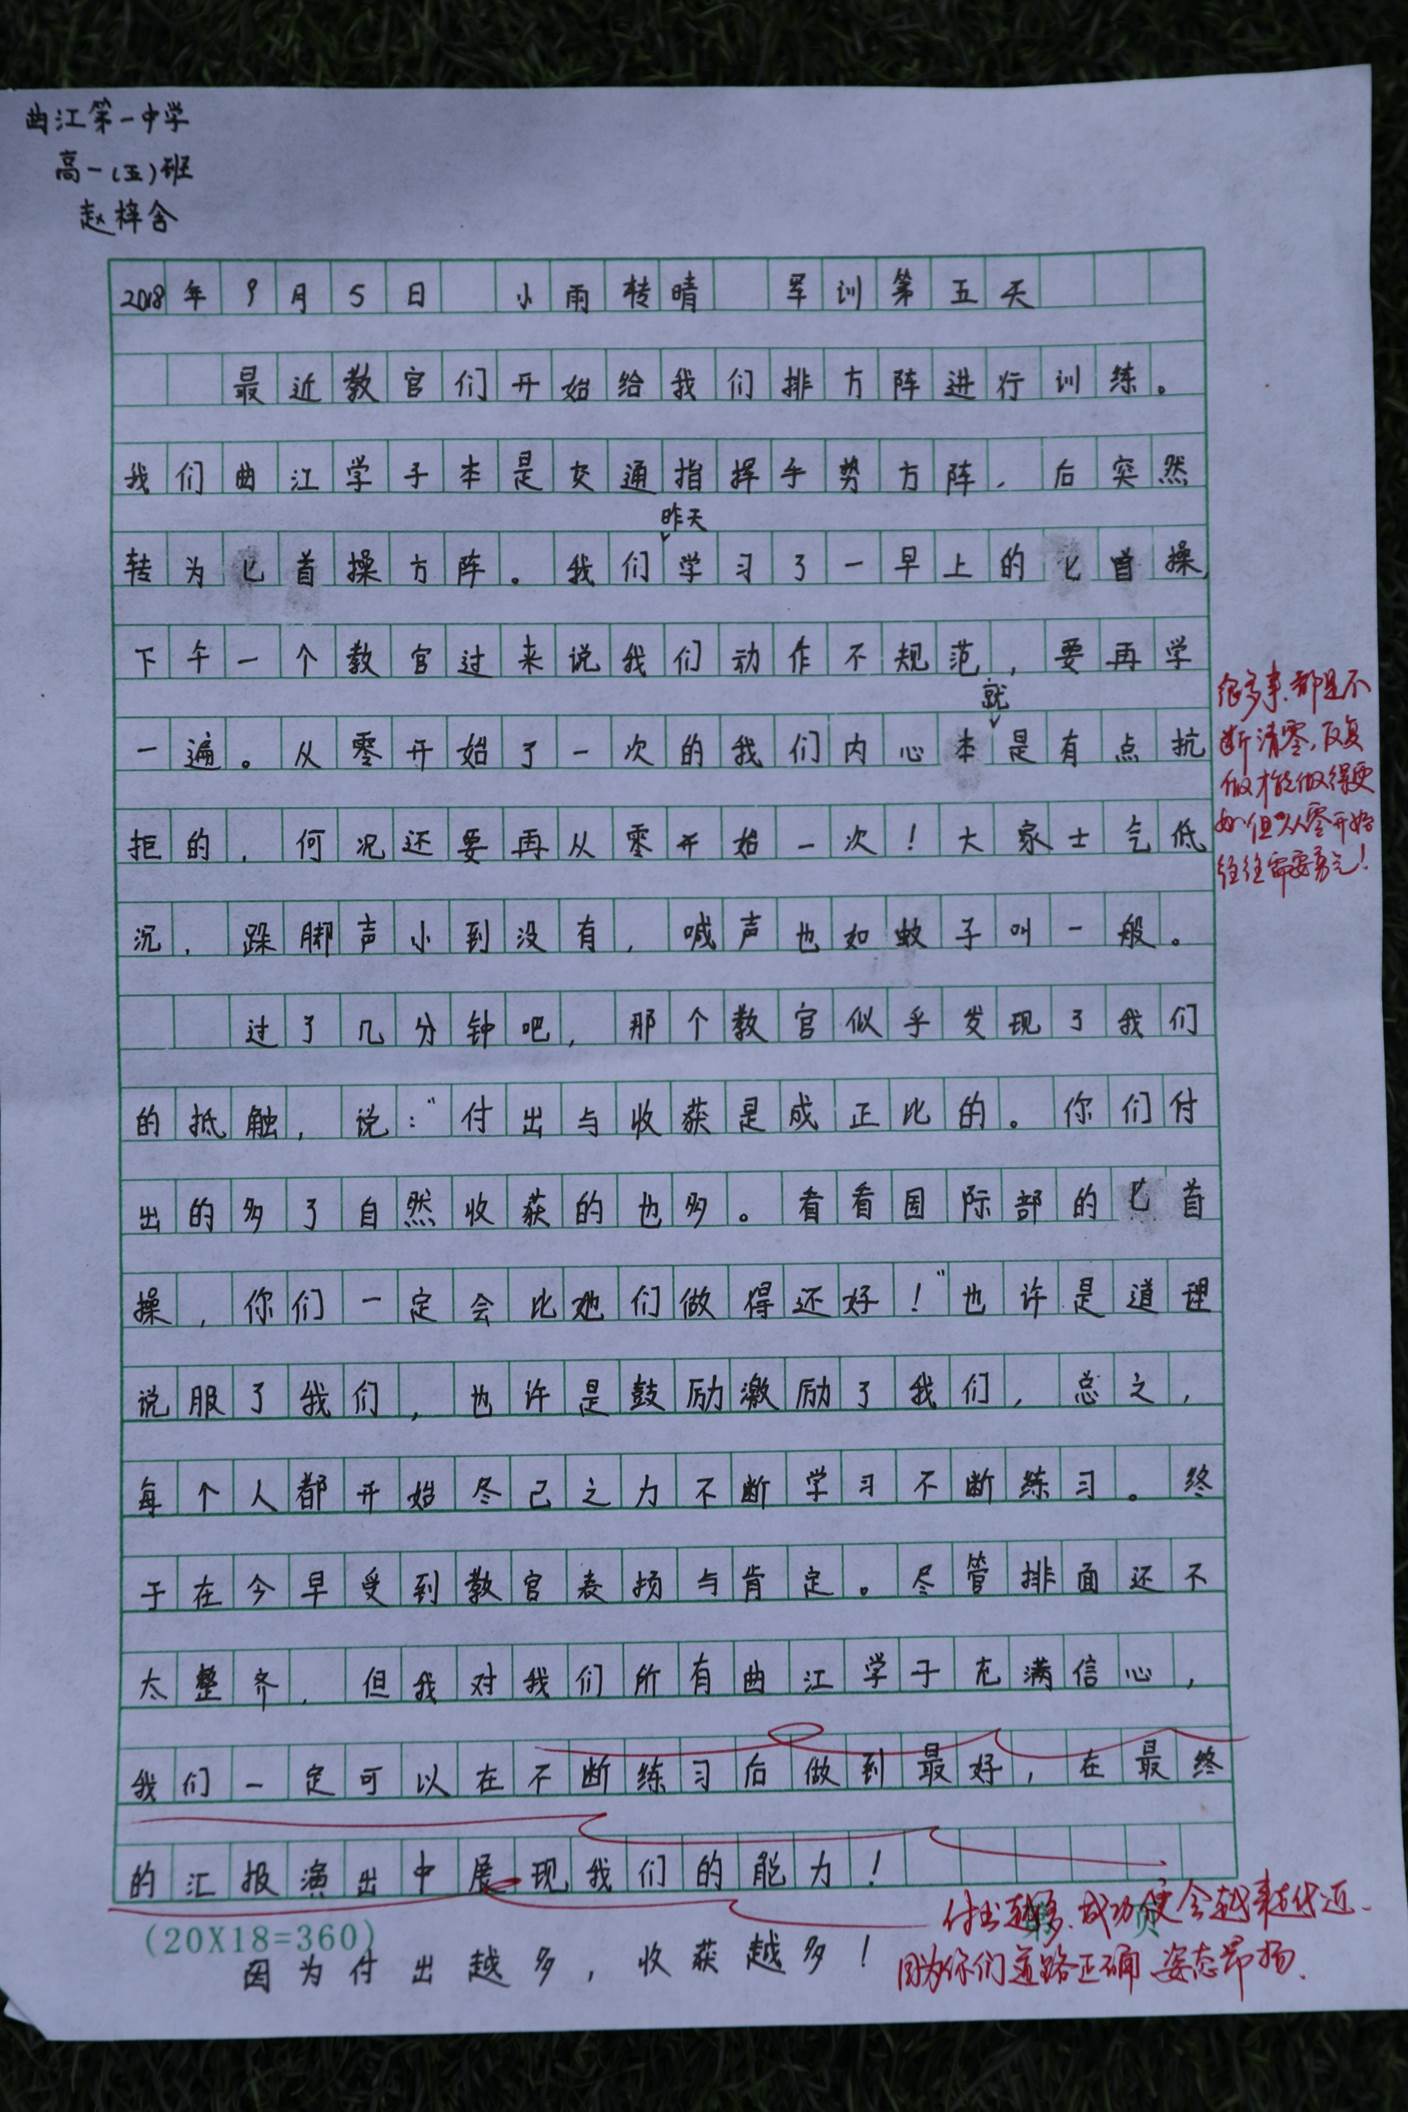 曲江第一中学
高一(五)班
赵梓含
2018年9月5日 小雨转晴 军训第五天
最近教官们开始给我们排方阵进行训练。
我们曲江学子本是交通指挥手势方阵，后突然
昨天
转为匕首操方阵。我们学习了一早上的匕首操，
下午一个教官过来说我们动作不规范，要再学
就
一遍。从零开始了一次的我们内心本是有点抗
拒的，何况还要再从零开始一次！大家士气低
沉，跺脚声小到没有，喊声也如蚊子叫一般。
过了几分钟吧，那个教官似乎发现了我们
的抵触，说："付出与收获是成正比的。你们付
出的多了自然收获的也多。看看国际部的匕首
操，你们一定会比她们做得还好！"也许是道理
说服了我们，也许是鼓励激励了我们，总之，
每个人都开始尽己之力不断学习不断练习。终
于在今早受到教官表扬与肯定。尽管排面还不
太整齐，但我对我们所有曲江学子充满信心，
我们一定可以在不断练习后做到最好，在最终
的汇报演出中展现我们的能力！
(20X18=360)
因为付出越多，收获越多！
很多事，都是不
断清零，反复
做才能做得更
好，但"从零开始
往往需要勇气！
付出越多，成功便会越来越近，
因为你们道路正确、姿态昂扬。